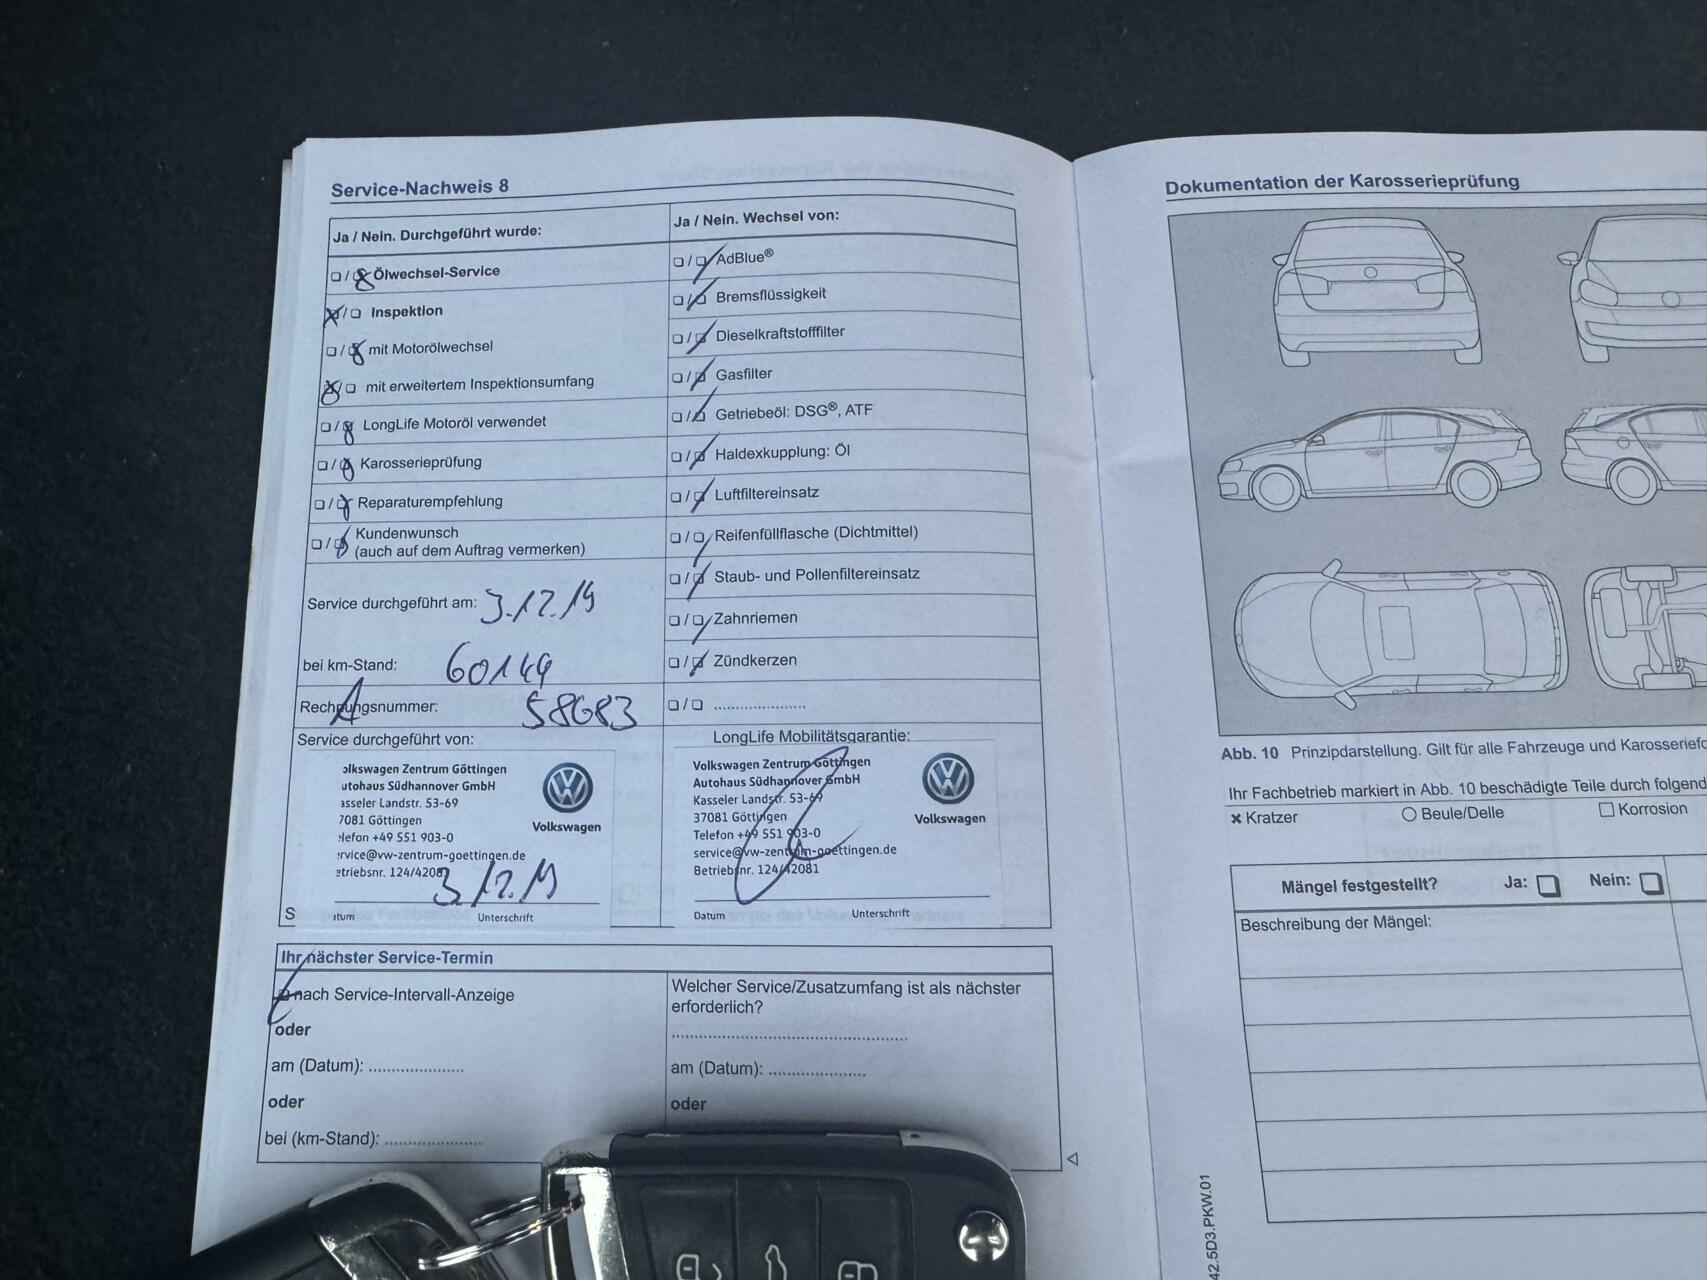 Service-Nachweis 8
Ja / Nein. Durchgeführt wurde:
❑ / ❑ Ölwechsel-Service
❑ / ❑ Inspektion
❑ / ❑ mit Motorölwechsel
❑ / ❑ mit erweitertem Inspektionsumfang
❑ / ❑ LongLife Motoröl verwendet
❑ / ❑ Karosserieprüfung
❑ / ❑ Reparaturempfehlung
❑ / ❑ Kundenwunsch
(auch auf dem Auftrag vermerken)
Service durchgeführt am: 3.12.19
bei km-Stand: 60144
Rechnungsnummer: 58683
Ja / Nein. Wechsel von:
❑ / ❑ AdBlue®
❑ / ❑ Bremsflüssigkeit
❑ / ❑ Dieselkraftstofffilter
❑ / ❑ Gasfilter
❑ / ❑ Getriebeöl: DSG®, ATF
❑ / ❑ Haldexkupplung: Öl
❑ / ❑ Luftfiltereinsatz
❑ / ❑ Reifenfüllflasche (Dichtmittel)
❑ / ❑ Staub- und Pollenfiltereinsatz
❑ / ❑ Zahnriemen
❑ / ❑ Zündkerzen
❑ / ❑ .....................
Service durchgeführt von:
olkswagen Zentrum Göttingen
utohaus Südhannover GmbH
asseler Landstr. 53-69
7081 Göttingen
lefon +49 551 903-0
rvice@vw-zentrum-goettingen.de
etriebsnr. 124/42081
Volkswagen
3.12.19
S
tum Unterschrift
LongLife Mobilitätsgarantie:
Volkswagen Zentrum Göttingen
Autohaus Südhannover GmbH
Kasseler Landstr. 53-69
37081 Göttingen
Telefon +49 551 903-0
service@vw-zentrum-goettingen.de
Betriebsnr. 124/42081
Volkswagen
Datum Unterschrift
Ihr nächster Service-Termin
❑ nach Service-Intervall-Anzeige
oder
am (Datum): .....................
oder
bei (km-Stand): .....................
Welcher Service/Zusatzumfang ist als nächster
erforderlich?
..................................................
am (Datum): .....................
oder
Dokumentation der Karosserieprüfung
Abb. 10 Prinzipdarstellung. Gilt für alle Fahrzeuge und Karosseriefo
Ihr Fachbetrieb markiert in Abb. 10 beschädigte Teile durch folgend
✖ Kratzer ○ Beule/Delle □ Korrosion
Mängel festgestellt? Ja: ❑ Nein: ❑
Beschreibung der Mängel:
42.5D3.PKW.01